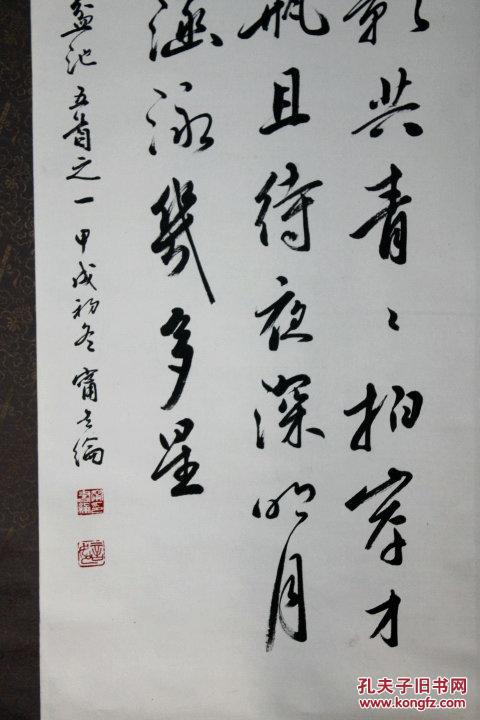 影共青〻拍岸才
瓶且待夜深明月
涵泳幾多星
盆池五首之一 甲戌初冬 甯綸
孔夫子旧书网
www.kongfz.com